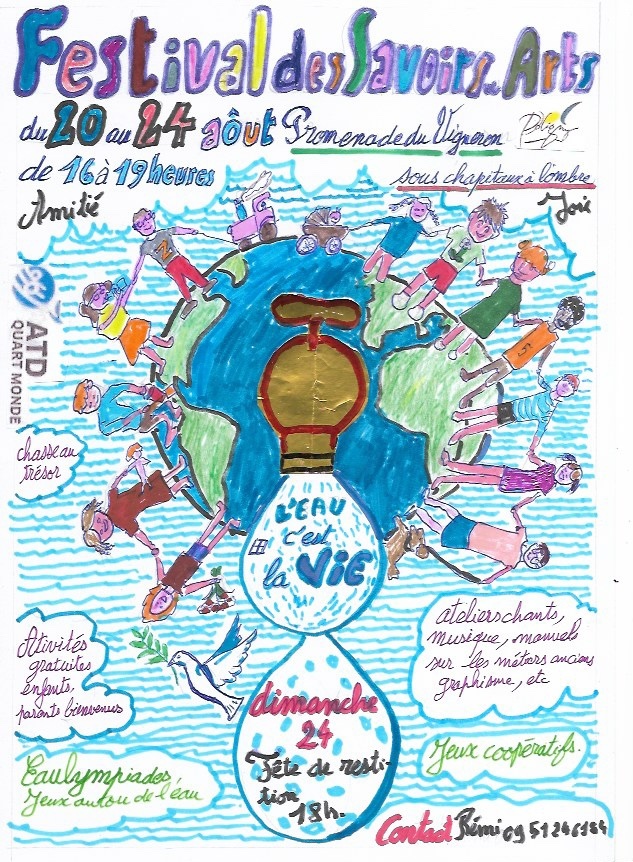 Festival des Savoirs et Arts
du 20 au 24 août Promenade du Vigneron
Poligny
de 16 à 19 heures
sous chapitaux à l'ombre
Amitié
Joie
ATD
QUART MONDE
chasse au
trésor
L'EAU
c'est
la VIE
Ativités
gratuites
enfants,
parents bienvenus
ateliers chants,
musique, manuels
sur les métiers anciens
graphisme, etc
dimanche
24
Fête de resti-
tion
18h.
Eaulympiades,
Jeux autou de l'eau
Jeux coopératifs.
Contact Rémi 09 51 24 61 84